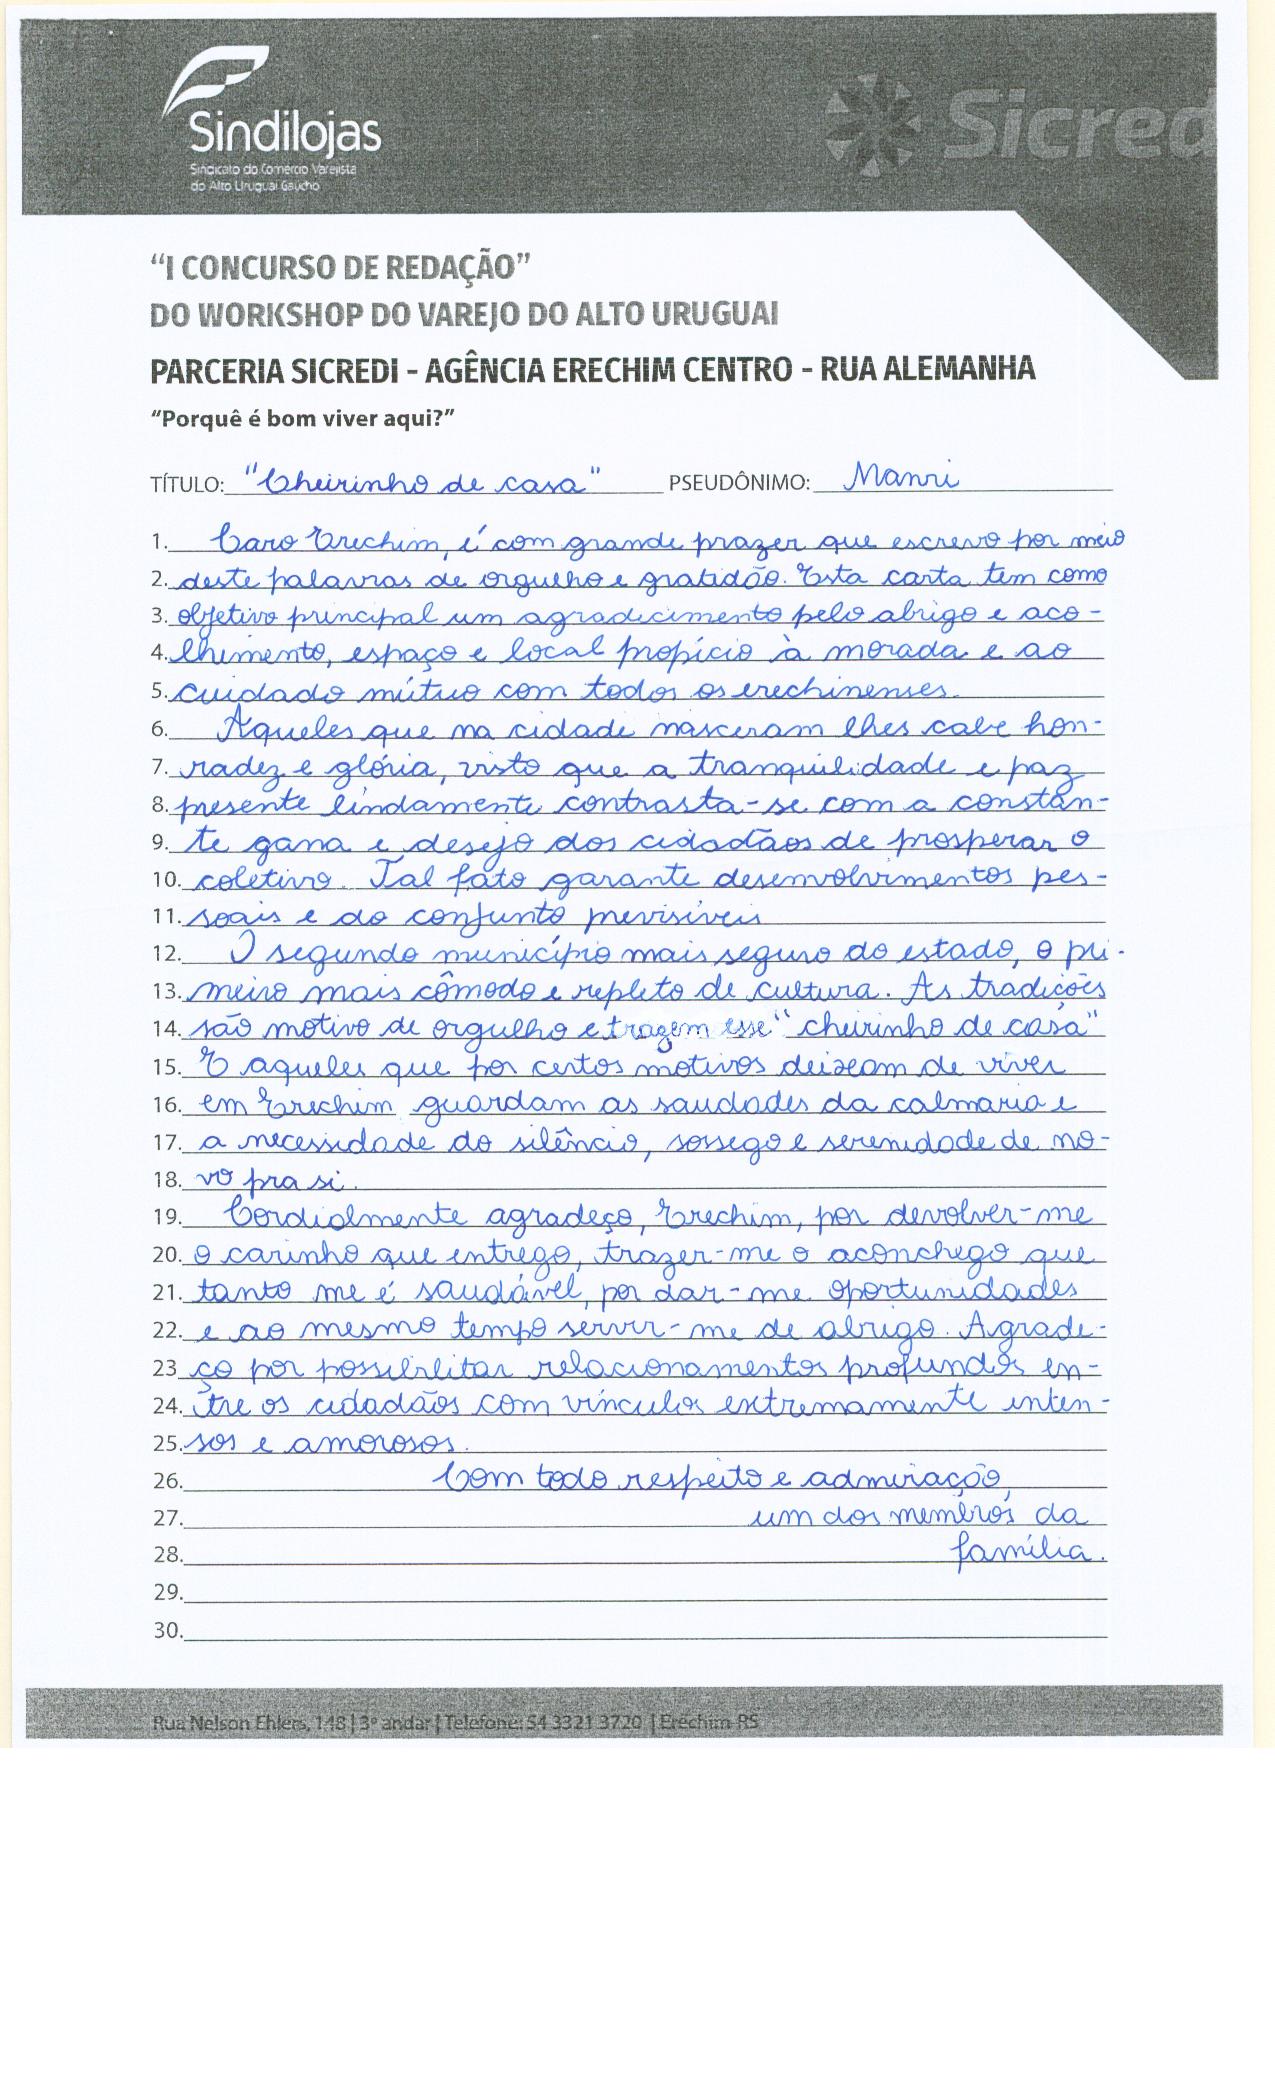 Sindilojas
Sindicato do Comércio Varejista
do Alto Uruguai Gaúcho
Sicred
“I CONCURSO DE REDAÇÃO”
DO WORKSHOP DO VAREJO DO ALTO URUGUAI
PARCERIA SICREDI - AGÊNCIA ERECHIM CENTRO - RUA ALEMANHA
“Porquê é bom viver aqui?”
TÍTULO: "Cheirinho de casa" PSEUDÔNIMO: Manri
1. Caro Erechim, é com grande prazer que escrevo por meio
2. deste palavras de orgulho e gratidão. Esta carta tem como
3. objetivo principal um agradecimento pelo abrigo e aco-
4. lhimento, espaço e local propício à morada e ao
5. cuidado mútuo com todos os erechinenses.
6. Àqueles que na cidade nasceram lhes cabe hon-
7. radez e glória, visto que a tranquilidade e paz
8. presente lindamente contrasta-se com a constan-
9. te gana e desejo dos cidadãos de prosperar o
10. coletivo. Tal fato garante desenvolvimentos pes-
11. soais e do conjunto previsíveis
12. O segundo município mais seguro do estado, o pri-
13. meiro mais cômodo e repleto de cultura. As tradições
14. são motivo de orgulho e trazem esse "cheirinho de casa"
15. E aqueles que por certos motivos deixam de viver
16. em Erechim guardam as saudades da calmaria e
17. a necessidade do silêncio, sossego e serenidade de no-
18. vo pra si.
19. Cordialmente agradeço, Erechim, por devolver-me
20. o carinho que entrego, trazer-me o aconchego que
21. tanto me é saudável, por dar-me oportunidades
22. e ao mesmo tempo servir-me de abrigo. Agrade-
23 ço por possibilitar relacionamentos profundos en-
24. tre os cidadãos com vínculos extremamente inten-
25. sos e amorosos.
26. Com todo respeito e admiração,
27. um dos membros da
28. família.
29.
30.
Rua Nelson Ehlers, 148 | 3º andar | Telefone: 54 3321 3720 | Erechim-RS